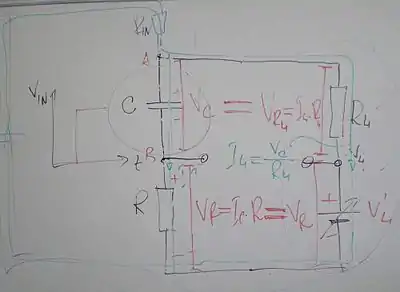 R_IN
A
V_IN
C
V_C = V_R4 = I_4.R
R_4
t
B
I_4 = V_C / R_4
V_4
+
R
V_R = I.R = V_R
+
V_4'